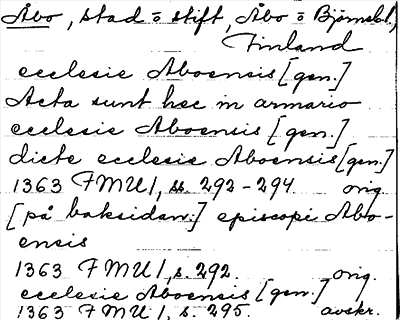 Åbo, stad o stift, Åbo o Björnebl.,
Finland
ecclesie Aboensis [gen.]
Acta sunt hec in armario
ecclesie Aboensis [gen.]
dicte ecclesie Aboensis [gen.]
1363 FMU I, ss. 292-294. orig.
[på baksidan:] episcopi Abo-
ensis
1363 FMU I, s. 292. orig.
ecclesie Aboensis [gen.]
1363 FMU I, s. 295. avskr.